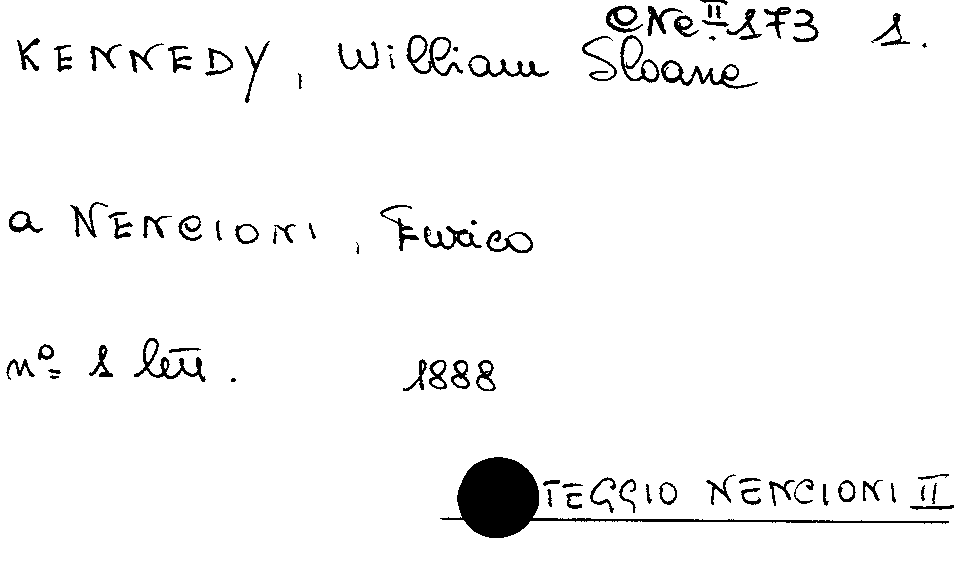 CNe.II 173 1.
KENNEDY, William Sloane
a NENCIONI, Enrico
nº 1 lett. 1888
TEGGIO NENCIONI II